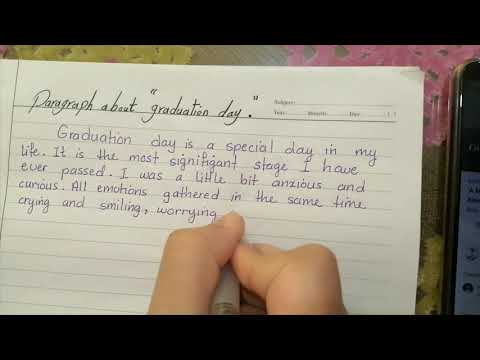 Paragraph about "graduation day."
Subject:
Year: Month: Day:
Graduation day is a special day in my
life. It is the most signifigant stage I have
ever passed. I was a little bit anxious and
curious. All emotions gathered in the same time
crying and smiling, worrying